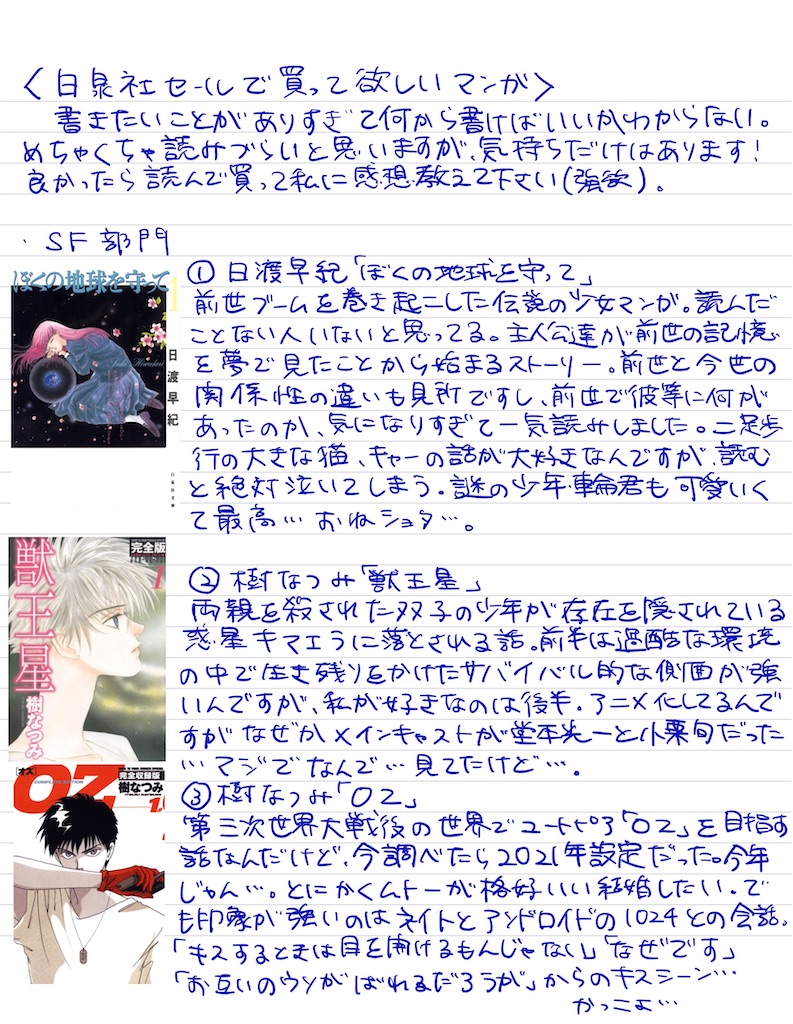 〈白泉社セールで買って欲しいマンガ〉
書きたいことがありすぎて何から書けばいいかわからない。
めちゃくちゃ読みづらいと思いますが、気持ちだけはあります!
良かったら読んで買って私に感想教えて下さい(強欲)。
・SF部門
ぼくの地球を守って
1
Saki Hiwatari
日渡早紀
白泉社文庫
①日渡早紀「ぼくの地球を守って」
前世ブームを巻き起こした伝説の少女マンガ。読んだ
ことない人いないと思ってる。主人公達が前世の記憶
を夢で見たことから始まるストーリー。前世と今世の
関係性の違いも見所ですし、前世で彼等に何が
あったのか、気になりすぎて一気読みしました。二足歩
行の大きな猫、キャーの話が大好きなんですが、読む
と絶対泣いてしまう。謎の少年・輪君も可愛いく
て最高…おねショタ…。
完全版
1
獣王星
樹なつみ
②樹なつみ「獣王星」
両親を殺された双子の少年が存在を隠されている
惑星キマエラに落とされる話。前半は過酷な環境
の中で生き残りをかけたサバイバル的な側面が強
いんですが、私が好きなのは後半。アニメ化してるんで
すがなぜかメインキャストが堂本光一と小栗旬だった
…マジでなんで…見てたけど…。
[オズ]
OZ
COMPLETE EDITION
完全収録版
樹なつみ
1
③樹なつみ「OZ」
第三次世界大戦後の世界でユートピア「OZ」を目指す
話なんだけど、今調べたら2021年設定だった。今年
じゃん…。とにかくムトーが格好いい結婚したい。で
も印象が強いのはネイトとアンドロイドの1024との会話。
「キスするときは目を開けるもんじゃない」「なぜです」
「お互いのウソがばれるだろうが」からのキスシーン…
かっこよ…